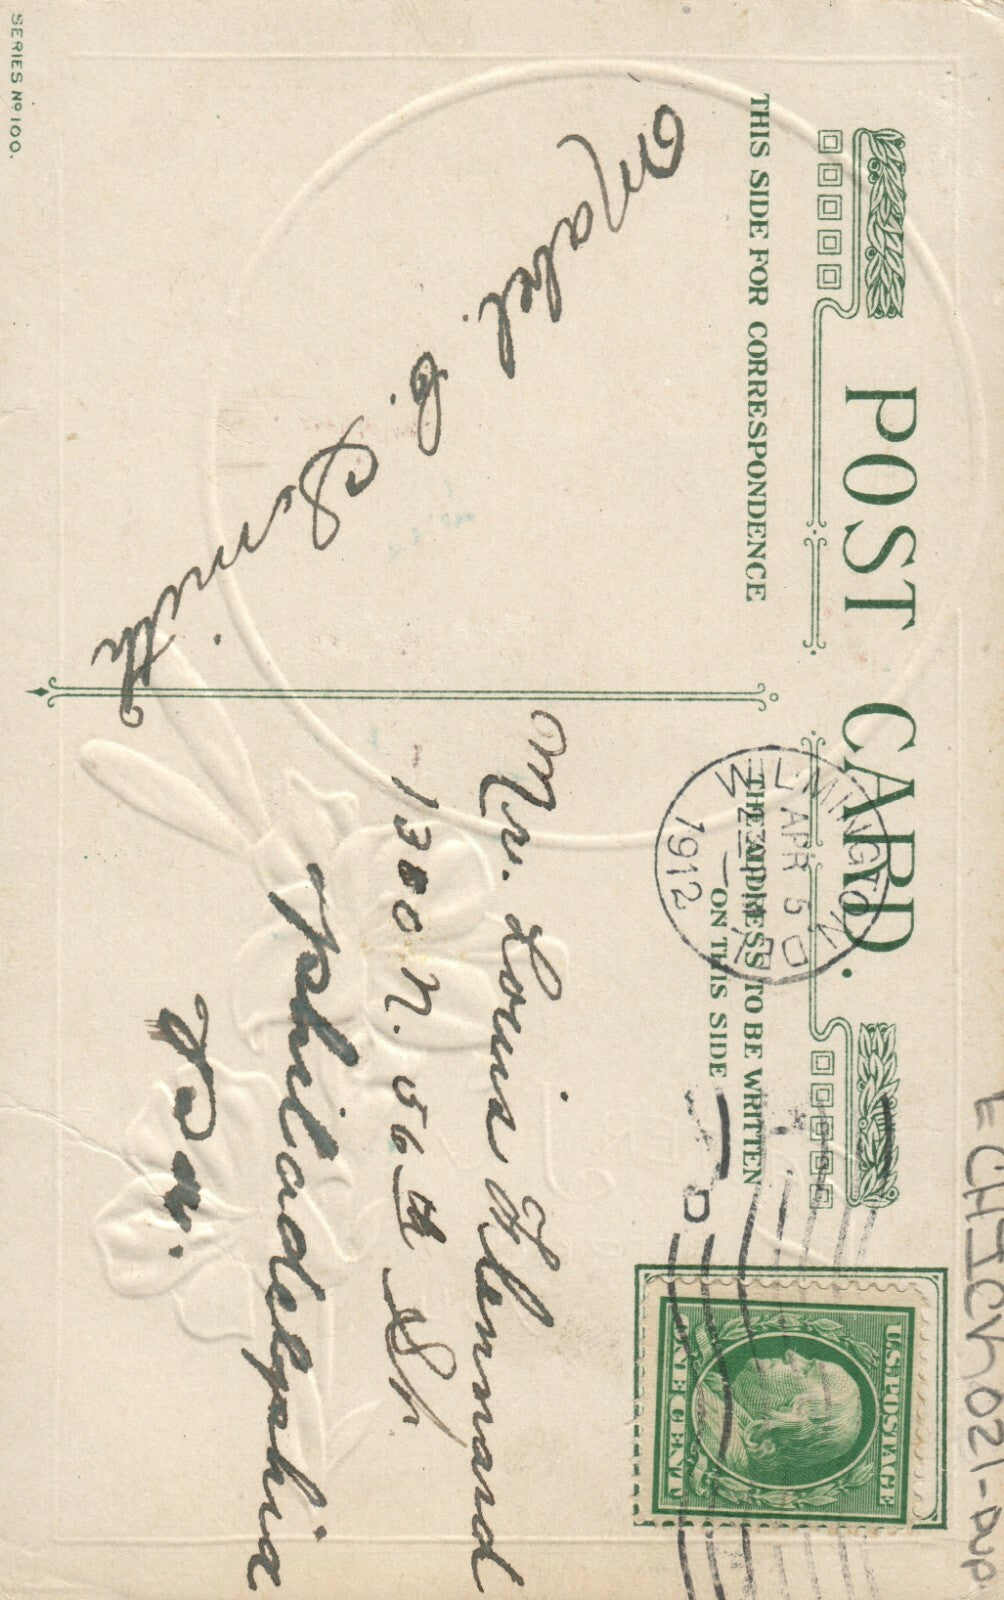 ECHICVh021-dup
POST CARD.
THIS SIDE FOR CORRESPONDENCE
THE ADDRESS TO BE WRITTEN
ON THIS SIDE
WILMINGTON
APR 5
1912
D
U.S. POSTAGE
ONE CENT
Mabel.
E. Smith
Mr. Louis
1300 N. 56th St.
Philadelphia
Pa.
SERIES No 100.